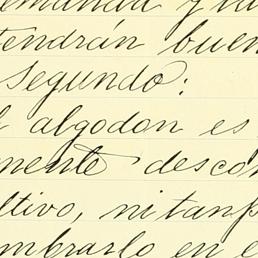 emanda y la
tendrán buen
segundo:
l algodon es
mente descon
ltivo, ni tanp
mbrarlo en e